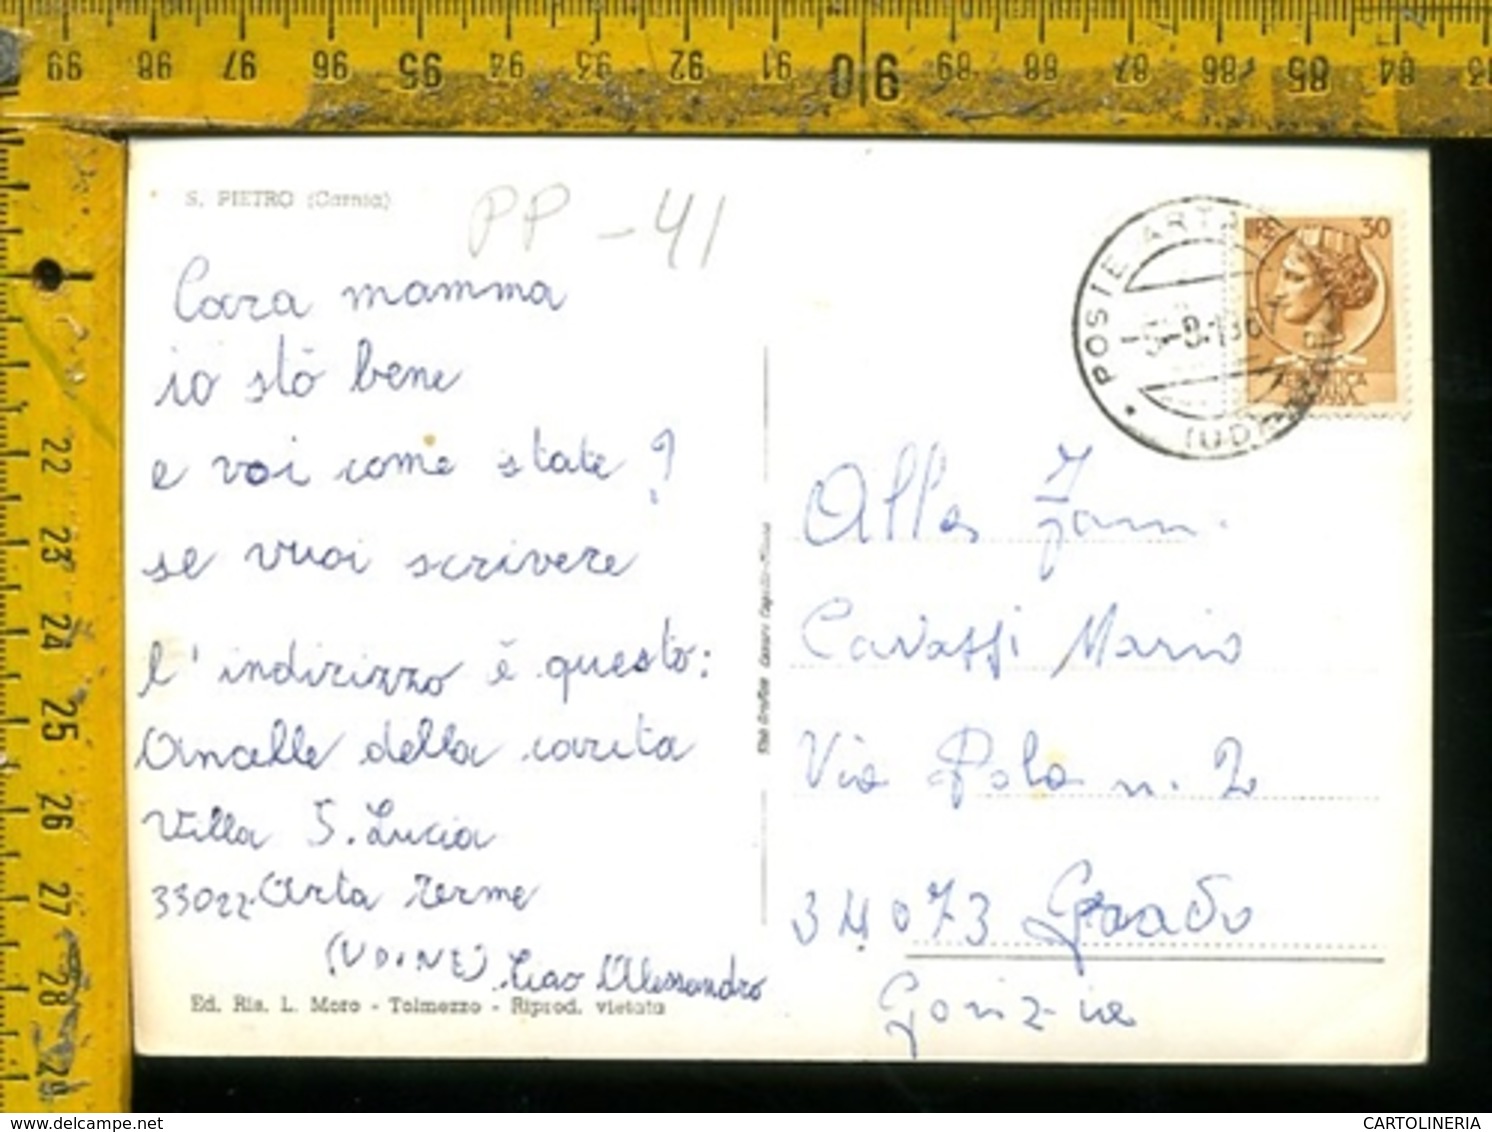 99 98 97 96 95 94 93 92 91 90 89 88 87 86 85 84
S. PIETRO (Carnia)
PP - 41
Cara mamma
io stò bene
e voi come state?
se vuoi scrivere
l'indirizzo è questo:
Ancelle della carita
Villa S. Lucia
33022 Arta Terme
(UDINE) Ciao Alessandro
Ed. Ris. L. Moro - Tolmezzo - Riprod. vietata
Stab. Grafico Cesare Capello - Milano
POSTE ARTA
(UD)
LIRE 30
Alla Fam.
Cavassi Mario
Via Pola n. 2
34073 Grado
Gorizia
22 23 24 25 26 27 28 29
CARTOLINERIA